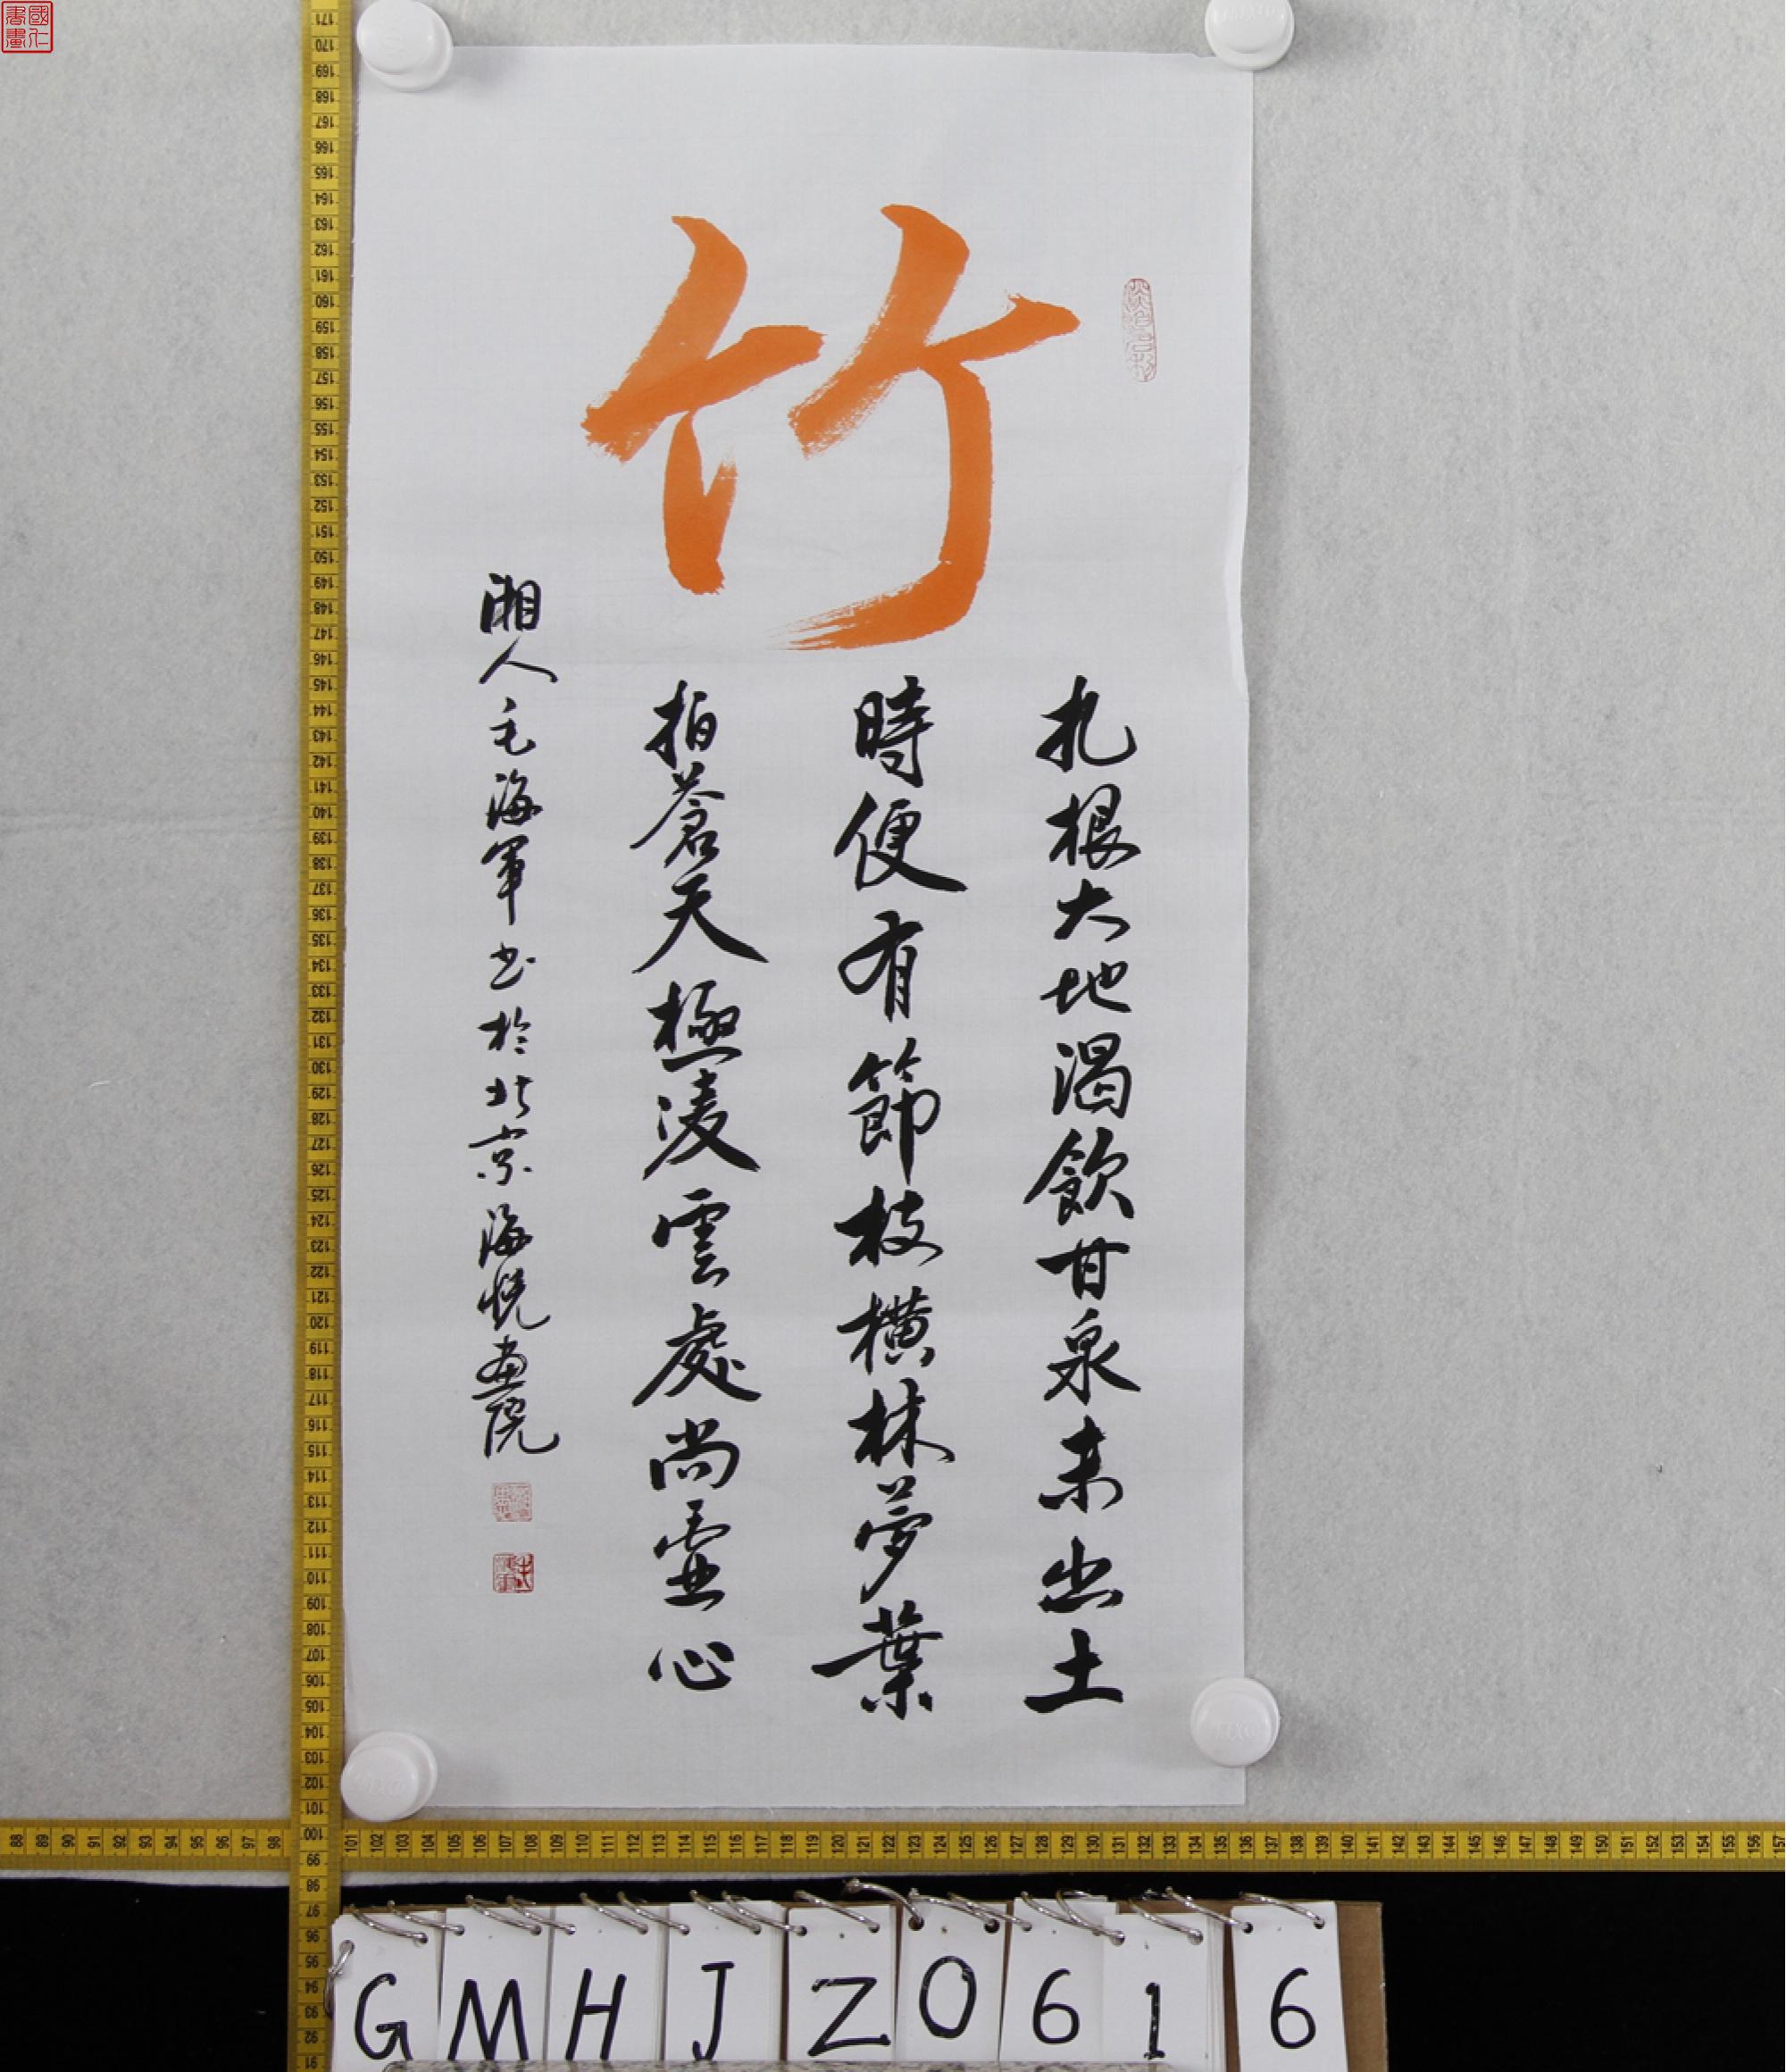 國仁書畫
竹
扎根大地渴飲甘泉未出土
時便有節枝橫林夢葉
拍蒼天極淩雲處尚虛心
湘人毛海軍书於北京海悦画院
GMHJZ0616